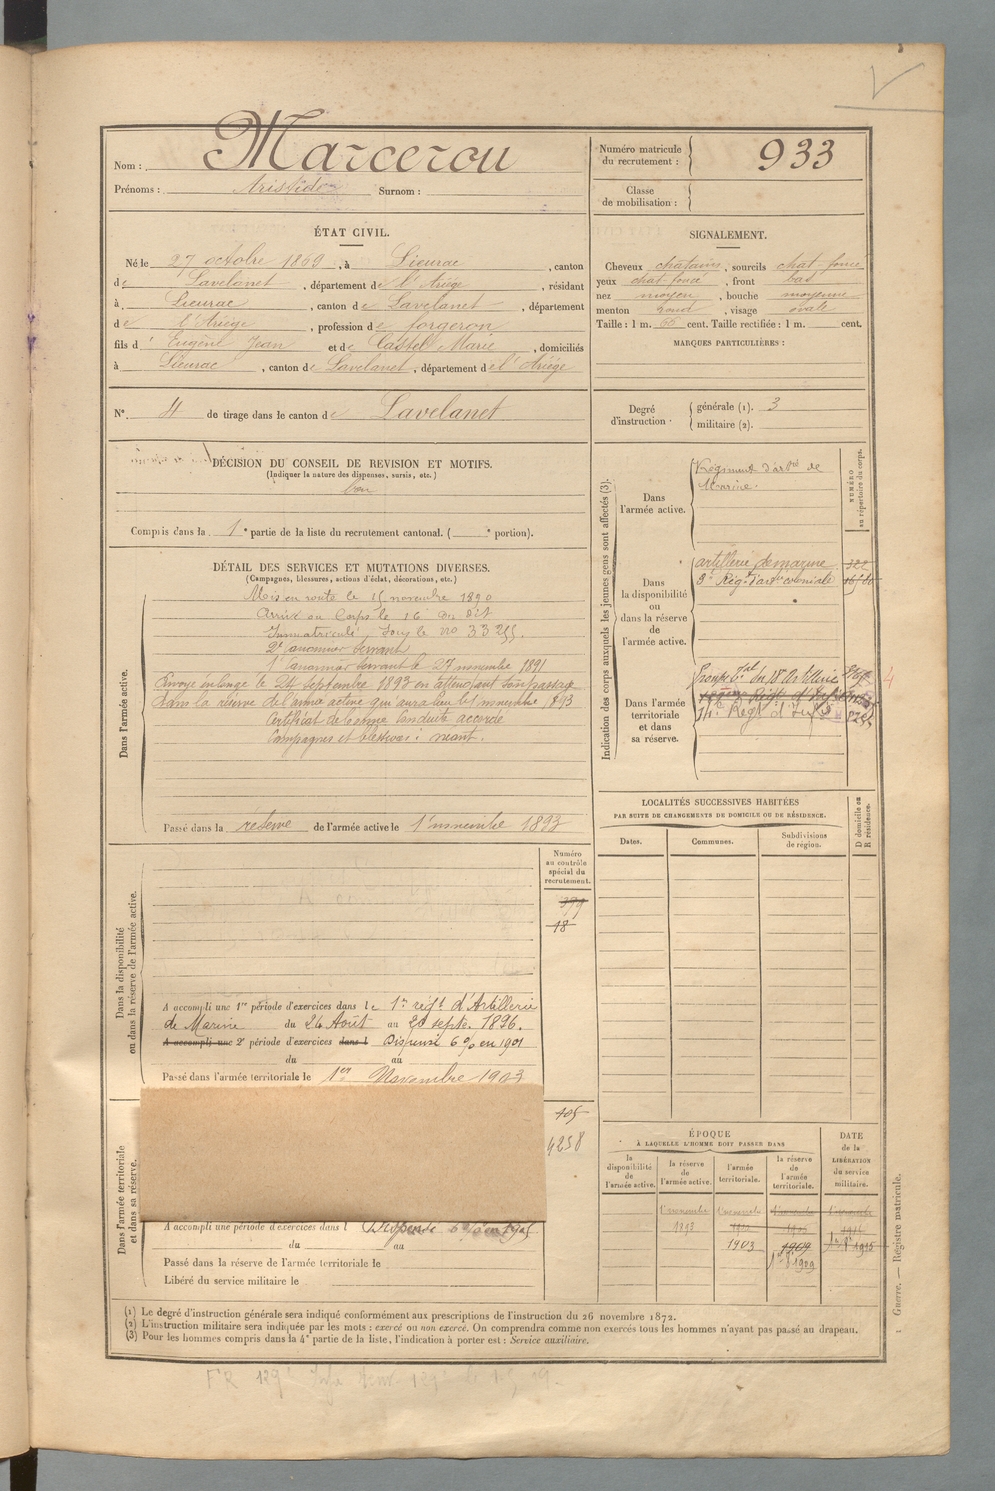 Nom : Marcerou
Prénoms : Aristide Surnom :
Numéro matricule du recrutement : 933
Classe de mobilisation :
ÉTAT CIVIL.
Né le 27 octobre 1869, à Lieurac, canton
de Lavelanet, département de l'Ariège, résidant
à Lieurac, canton de Lavelanet, département
de l'Ariège, profession de forgeron
fils d' Eugène Jean et de Castel Marie, domiciliés
à Lieurac, canton de Lavelanet, département de l'Ariège
SIGNALEMENT.
Cheveux chatains, sourcils chat. foncé
yeux chat. foncé, front bas
nez moyen, bouche moyenne
menton rond, visage ovale
Taille : 1 m. 66 cent. Taille rectifiée : 1 m. cent.
MARQUES PARTICULIÈRES :
N° 4 de tirage dans le canton de Lavelanet
Degré d'instruction
générale (1). 3
militaire (2).
DÉCISION DU CONSEIL DE REVISION ET MOTIFS.
(Indiquer la nature des dispenses, sursis, etc.)
bon
Compris dans la 1e partie de la liste du recrutement cantonal. ( e portion).
DÉTAIL DES SERVICES ET MUTATIONS DIVERSES.
(Campagnes, blessures, actions d'éclat, décorations, etc.)
Dans l'armée active.
Mis en route le 15 novembre 1890
Arrivé au Corps le 16 du dit
Immatriculé sous le no 33255.
2e Canonnier Servant
1e Canonnier Servant le 27 novembre 1891
Envoyé en congé le 24 Septembre 1893 en attendant son passage
dans la réserve de l'armée active qui aura lieu le 1 novembre 1893
Certificat de bonne conduite accordé
Campagnes et blessures : néant.
Passé dans la réserve de l'armée active le 1e novembre 1893
Indication des corps auxquels les jeunes gens sont affectés (3).
NUMÉRO au répertoire du corps.
Dans l'armée active.
Régiment d'artrie de
Marine.
Dans la disponibilité ou dans la réserve de l'armée active.
artillerie de marine
3e Régt d'artie coloniale
Dans l'armée territoriale et dans sa réserve.
Groupe tal du 18e Artillerie
Regt d'Inf
LOCALITÉS SUCCESSIVES HABITÉES
PAR SUITE DE CHANGEMENTS DE DOMICILE OU DE RÉSIDENCE.
Dates.
Communes.
Subdivisions de région.
D domicile ou R résidence.
Dans la disponibilité ou dans la réserve de l'armée active.
Numéro au contrôle spécial du recrutement.
399
18
A accompli une 1re période d'exercices dans le 1er régt d'Artillerie
de Marine du 24 Août au 20 septe. 1896.
A accompli une 2e période d'exercices dans l Dispensé 6 % en 1901
du au
Passé dans l'armée territoriale le 1er Novembre 1903
Dans l'armée territoriale et dans sa réserve.
105
4258
A accompli une période d'exercices dans l Dispensé 6 % en 1905
du au
Passé dans la réserve de l'armée territoriale le
Libéré du service militaire le
ÉPOQUE
À LAQUELLE L'HOMME DOIT PASSER DANS
la disponibilité de l'armée active.
la réserve de l'armée active.
l'armée territoriale.
la réserve de l'armée territoriale.
DATE de la LIBÉRATION du service militaire.
1e novembre 1893
1e novembre
1903
1909
1909
1915
(1) Le degré d'instruction générale sera indiqué conformément aux prescriptions de l'instruction du 26 novembre 1872.
(2) L'instruction militaire sera indiquée par les mots : exercé ou non exercé. On comprendra comme non exercés tous les hommes n'ayant pas passé au drapeau.
(3) Pour les hommes compris dans la 4e partie de la liste, l'indication à porter est : Service auxiliaire.
1 Guerre. — Registre matricule.